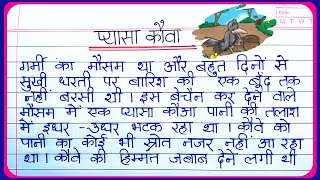 प्यासा कौवा
Date
M T W T
गर्मी का मौसम था और बहुत दिनों से
सुखी धरती पर बारिश की एक बूंद तक
नहीं बरसी थी। इस बेचैन कर देने वाले
मौसम में एक प्यासा कौआ पानी की तलाश
में इधर-उधर भटक रहा था। कौवे को
पानी का कोई भी स्रोत नजर नहीं आ रहा
था। कौवे की हिम्मत जबाब देने लगी थी